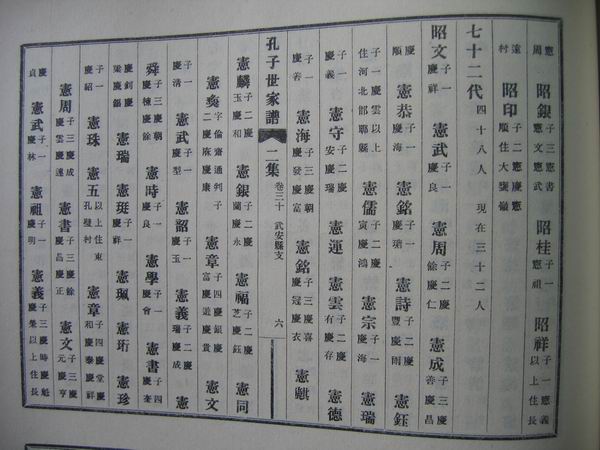 憲周 昭銀 子三憲書憲文憲武 昭桂 子一憲祖 昭祥 子一憲義以上住長
遠村 昭印 子二憲慶憲順住大甕嶺
七十二代 四十八人 現在三十二人
昭文 子一慶祥 憲武 子一慶良 憲周 子二慶餘慶仁 憲成 子三慶善慶昌
慶順 憲恭 子一慶海 憲銘 子一慶 憲詩 子二慶豐慶雨 憲鈺
子一慶雲以上住河北部縣 憲儒 子二慶寅慶鴻 憲宗 子一慶海 憲瑞
子一慶義 憲守 子二慶安慶瑞 憲運 憲雲 子二慶有慶存 憲德
子一慶善 憲海 子三慶朝慶發慶富 憲銘 子三慶喜慶冠慶衣 憲麒
孔子世家譜 二集 卷三十 武安縣支 六
憲麟 子二慶玉慶和 憲銀 子二慶蘭慶永 憲福 子二慶芝慶鈺 憲同
憲奐 字倫齋通判子二慶庥慶康 憲章 子四慶銀慶富慶道慶貴 憲文
子一慶清 憲武 子一慶型 憲韶 子一慶玉 憲義 子二慶瑞慶成 憲
舜 子三慶朝慶棟慶餘 憲時 子一慶良 憲學 子一慶會 憲書 子四慶奎
慶釗慶梁慶錙 憲瑞 憲珽 子一慶祥 憲珮 憲珩 憲珍
子一慶紹 憲珠 憲五 以上住東孔壁村 憲章 子四慶堂慶和慶泰慶祥
憲周 子三慶成慶雲慶連 憲書 子三慶餘慶昌慶正 憲文 子三慶元慶亨
慶貞 憲武 子一慶林 憲祖 子一慶明 憲義 子三慶時慶魁慶榮以上住長